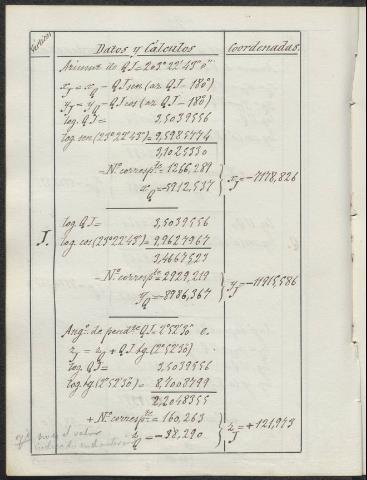 Vértices
Datos y Cálculos
Coordenadas.
Azimut de QJ=203°22'43"0'''
x_J = x_Q - QJ sen (az QJ - 180)
y_J = y_Q - QJ cos (az QJ - 180)
log. QJ= 3,5039556
log. sen (23°22'43")= 9,5985774
3,1025330
-Nº corresp.te= 1266,289
x_Q=-5912,537
x_J=-7178,826
J.
log QJ= 3,5039556
log. cos (23°22'43")= 9,9627967
3,4667523
-Nº corresp.te= 2929,219
y_Q=-8986,367
y_J=-11915,586
Ang.º de pend.te QJ. 2°52'30" e.
z_J = z_Q + QJ tg. (2°52'30")
log QJ= 3,5039556
log. tg. (2°52'30")= 8,7008799
2,2048355
+ Nº corresp.te= 160,263
z_Q=-38,290
z_J=+121,973